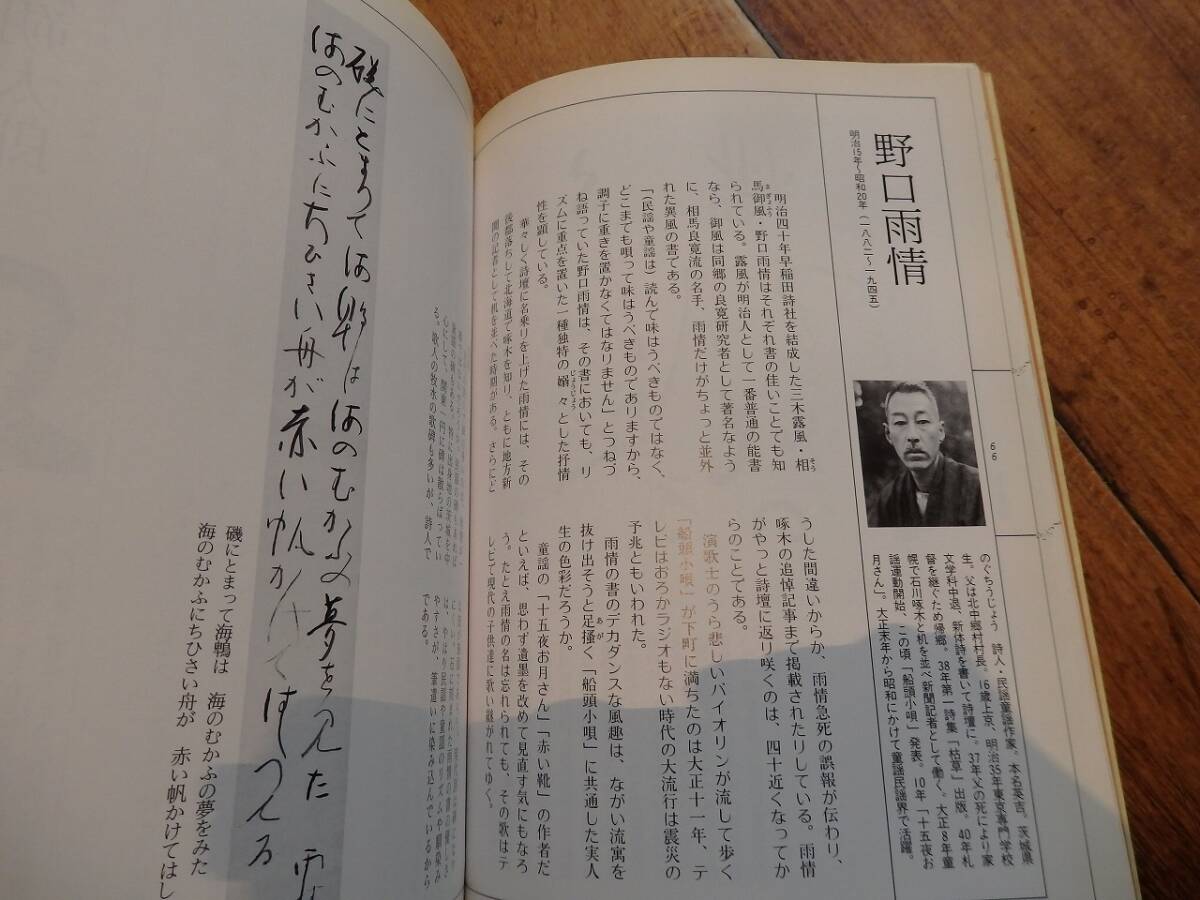 野口雨情
明治15年〜昭和20年(一八八二〜一九四五)
66
のぐちうじょう 詩人・民謡童謡作家。本名英吉。茨城県
生。父は北中郷村村長。16歳上京、明治35年東京専門学校
文学科中退、新体詩を書いて詩壇に。37年父の死により家
督を継ぐため帰郷。38年第一詩集「枯草」出版。40年札
幌で石川啄木と机を並べ新聞記者として働く。大正8年童
謡運動開始、この頃「船頭小唄」発表。10年「十五夜お
月さん」。大正末年から昭和にかけて童謡民謡界で活躍。
明治四十年早稲田詩社を結成した三木露風・相
馬御風・野口雨情はそれぞれ書の佳いことでも知
られている。露風が明治人として一番普通の能書
なら、御風は同郷の良寛研究者として著名なよう
に、相馬良寛流の名手、雨情だけがちょっと並外
れた異風の書である。
「(民謡や童謡は)読んで味はうべきものてはなく、
どこまても唄って味はうべきものてありますから、
調子に重きを置かなくてはなりません」とつねづ
ね語っていた野口雨情は、その書においても、リ
ズムに重点を置いた一種独特の嫋々とした抒情
性を顕している。
華々しく詩壇に名乗りを上げた雨情には、その
後都落ちして北海道で啄木を知り、ともに地方新
聞の記者として机を並べた時期がある。さらにど
うした間違いからか、雨情急死の誤報が伝わり、
啄木の追悼記事まで掲載されたりしている。雨情
がやっと詩壇に返り咲くのは、四十近くなってか
らのことである。
演歌士のうら悲しいバイオリンが流して歩く
「船頭小唄」が下町に満ちたのは大正十一年、テ
レビはおろかラジオもない時代の大流行は震災の
予兆ともいわれた。
雨情の書のデカダンスな風趣は、ながい流寓を
抜け出そうと足掻く「船頭小唄」に共通した実人
生の色彩だろうか。
童謡の「十五夜お月さん」「赤い靴」の作者だ
といえば、思わず遺墨を改めて見直す気にもなろ
う。たとえ雨情の名は忘れられても、その歌はテ
レビで現代の子供達に歌い継がれてゆく。
心にして、関東一円に碑は散らばってい
る。歌人の牧水の歌碑も多いが、詩人で
は、やはり民謡や童謡のリズムや馴染み
やすさが、筆遣いに染み込んでいるから
である。
磯にとまつて海鴨は海のむかふの夢を見た
海のむかふにちひさい舟が赤い帆かけてはしつてる
磯にとまって海鴨は 海のむかふの夢をみた
海のむかふにちひさい舟が 赤い帆かけてはし